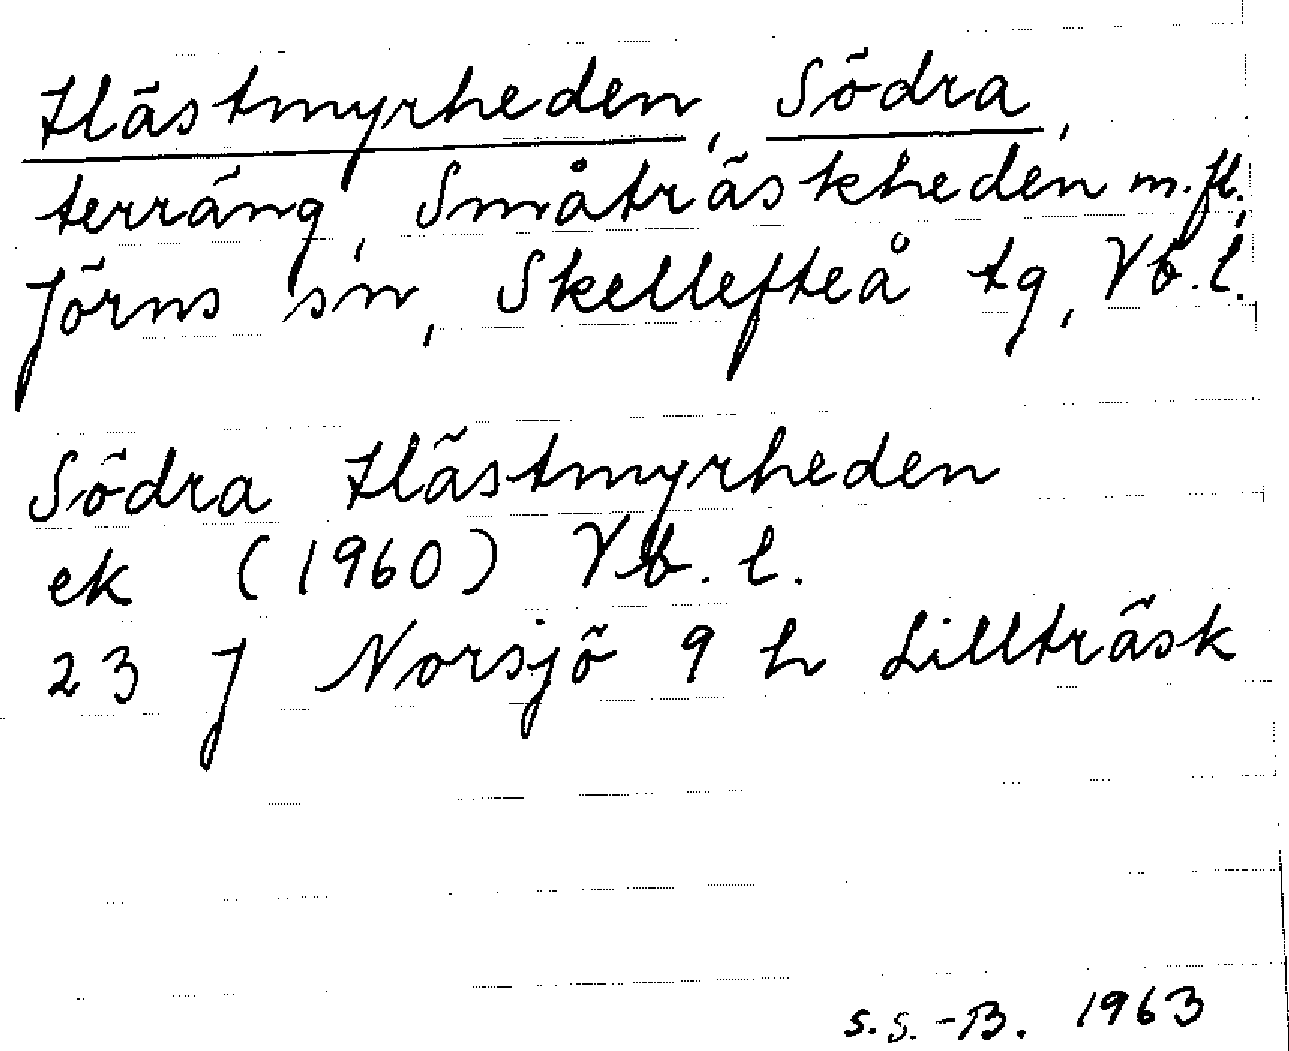 Hästmyrheden, Södra,
terräng, Småträskheden m.fl.,
Jörns sn, Skellefteå tg, Vb.l.
Södra Hästmyrheden
ek (1960) Vb.l.
23 J Norsjö 9 h Lillträsk
S.S.-B. 1963